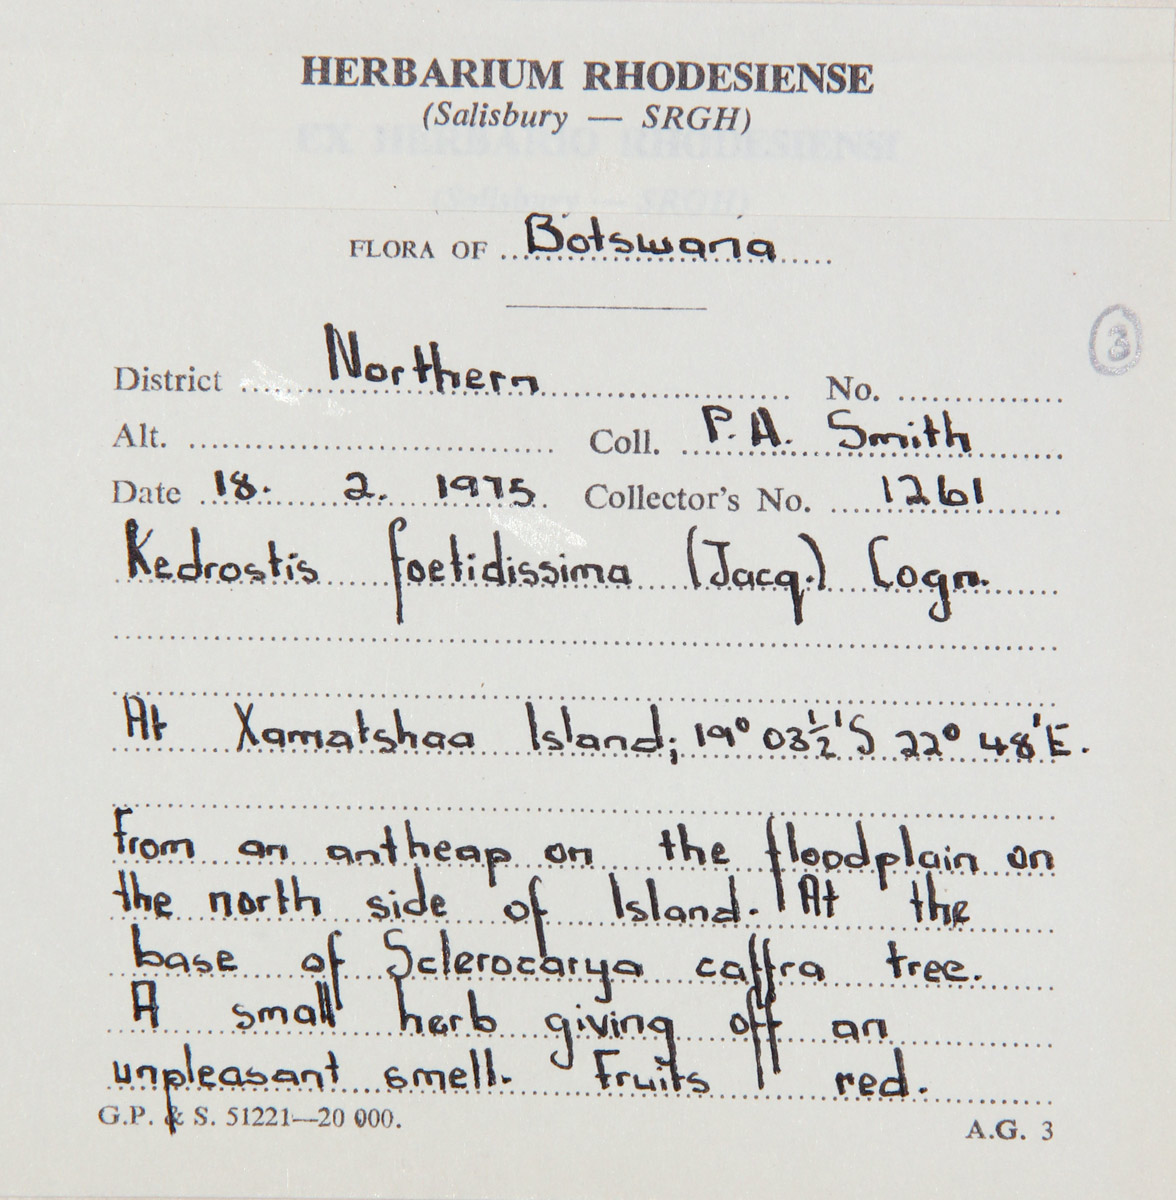 HERBARIUM RHODESIENSE
(Salisbury — SRGH)
EX HERBARIO RHODESIENSI
(Salisbury — SRGH)
FLORA OF Botswana
3
District Northern No.
Alt. Coll. P. A. Smith
Date 18. 2. 1975 Collector's No. 1261
Kedrostis foetidissima (Jacq.) Cogn.
At Xamatshaa Island; 19° 03½'S 22° 48'E.
From an antheap on the floodplain on
the north side of Island. At the
base of Sclerocarya caffra tree.
A small herb giving off an
unpleasant smell. Fruits red.
G.P. & S. 51221—20 000.
A.G. 3